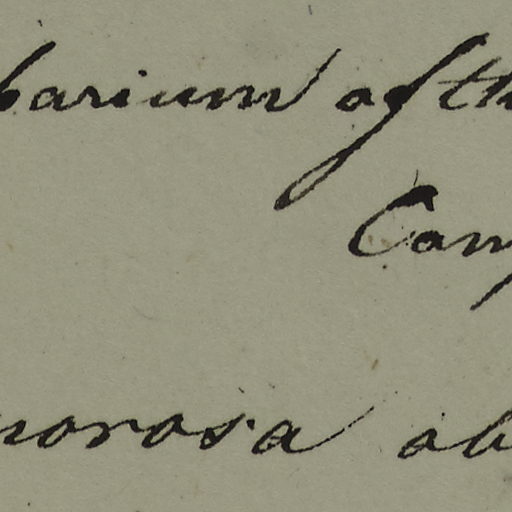 barium of th
Cam
norosa ab